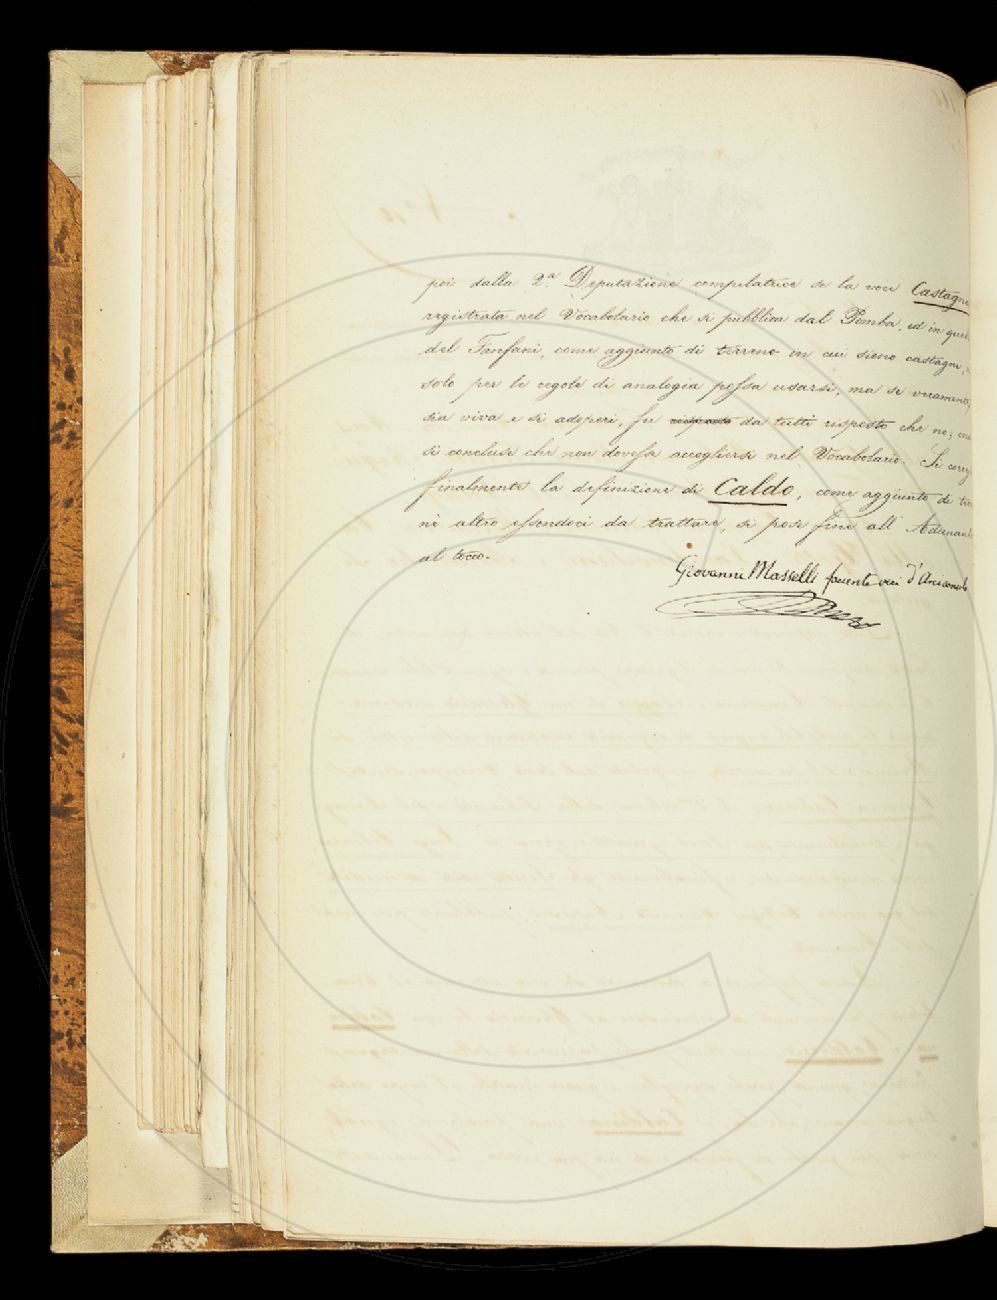 poi dalla 2.a Deputazione compilatrice se la voce Castagno
registrata nel Vocabolario che si pubblica dal Pomba, ed in quel
del Fanfani, come aggiunto di terreno in cui sieno castagni,
solo per le regole di analogia possa usarsi, ma se veramente
sia viva e si adoperi, fu risposto da tutti risposto che no; 
si concluse che non dovesse accogliersi nel Vocabolario. Si
finalmente la definizione di Caldo, come aggiunto di
nè altro essendoci da trattare, si pose fine all' Adunanza
al tocco.
Giovanni Masselli facente veci d'Arciconsolo